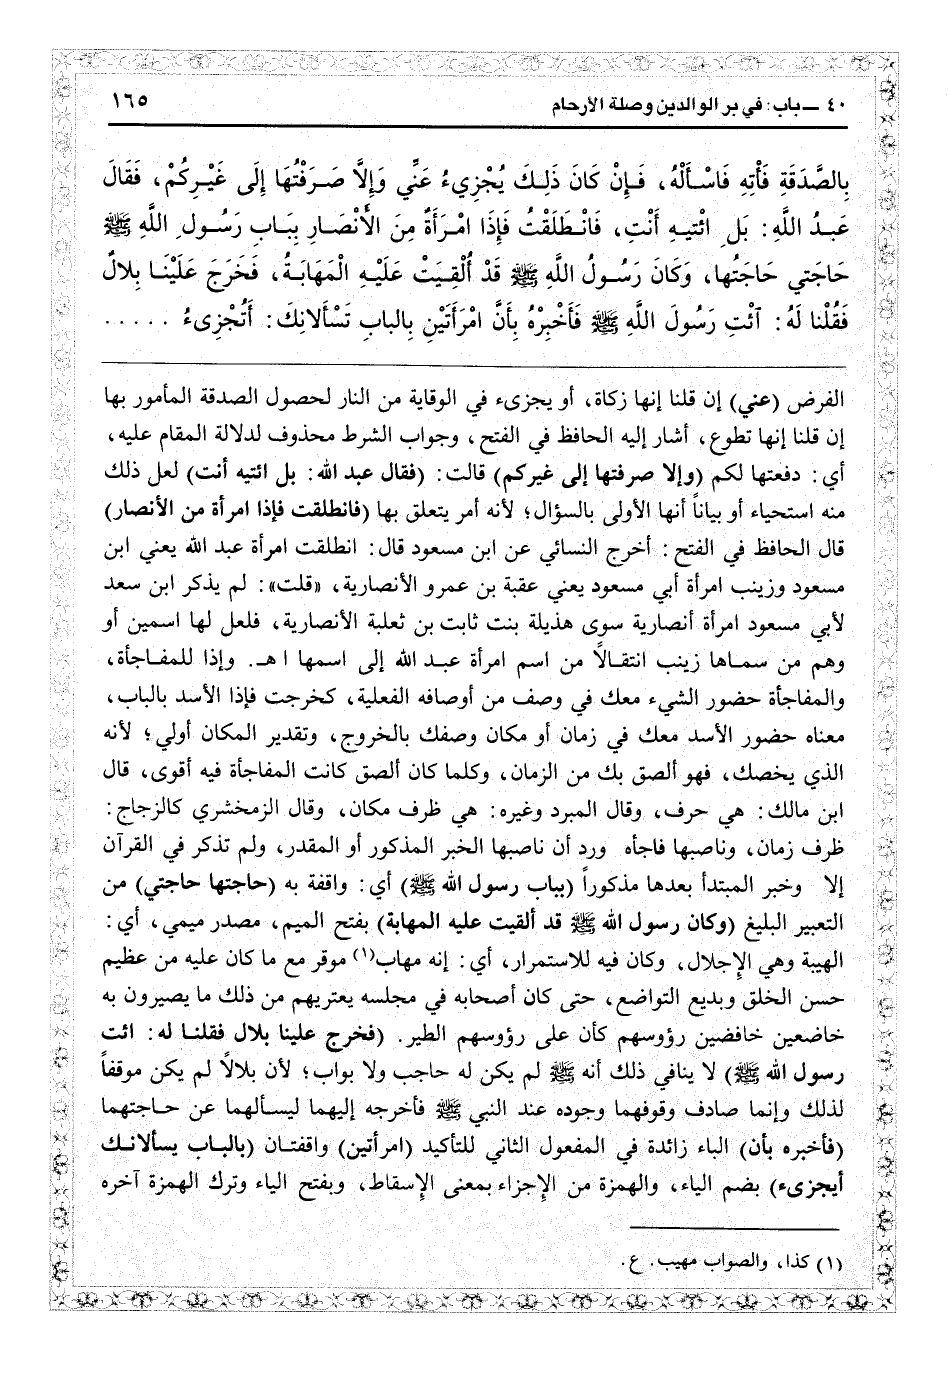 ٤٠ ــ باب: في بر الوالدين وصلة الأرحام ١٦٥
بِالصَّدَقَةِ فَأْتِهِ فَاسْأَلْهُ، فَإِنْ كَانَ ذَلِكَ يُجْزِيءُ عَنِّي وَإِلَّا صَرَفْتُهَا إِلَى غَيْرِكُمْ، فَقَالَ
عَبدُ اللَّهِ: بَلِ ائْتيهِ أَنْتِ، فَانْطَلَقْتُ فَإِذَا امْرَأَةٌ مِنَ الأَنْصَارِ بِبَابِ رَسُولِ اللَّهِ ﷺ
حَاجَتي حَاجَتُها، وَكَانَ رَسُولُ اللَّهِ ﷺ قَدْ أُلْقِيَتْ عَلَيْهِ الْمَهَابَةُ، فَخَرَجَ عَلَيْنَا بِلالٌ
فَقُلْنا لَهُ: آئْتِ رَسُولَ اللَّهِ ﷺ فَأَخْبِرْهُ بِأَنَّ امْرَأَتَيْنِ بِالبابِ تَسْأَلانِكَ: أَتُجْزِىءُ .....
الفرض (عني) إن قلنا إنها زكاة، أو يجزىء في الوقاية من النار لحصول الصدقة المأمور بها
إن قلنا إنها تطوع، أشار إليه الحافظ في الفتح، وجواب الشرط محذوف لدلالة المقام عليه،
أي: دفعتها لكم (وإلا صرفتها إلى غيركم) قالت: (فقال عبد الله: بل ائتيه أنت) لعل ذلك
منه استحياء أو بياناً أنها الأولى بالسؤال؛ لأنه أمر يتعلق بها (فانطلقت فإذا امرأة من الأنصار)
قال الحافظ في الفتح: أخرج النسائي عن ابن مسعود قال: انطلقت امرأة عبد الله يعني ابن
مسعود وزينب امرأة أبي مسعود يعني عقبة بن عمرو الأنصارية، «قلت»: لم يذكر ابن سعد
لأبي مسعود امرأة أنصارية سوى هذيلة بنت ثابت بن ثعلبة الأنصارية، فلعل لها اسمين أو
وهم من سماها زينب انتقالاً من اسم امرأة عبد الله إلى اسمها اهـ. وإذا للمفاجأة،
والمفاجأة حضور الشيء معك في وصف من أوصافه الفعلية، كخرجت فإذا الأسد بالباب،
معناه حضور الأسد معك في زمان أو مكان وصفك بالخروج، وتقدير المكان أولي؛ لأنه
الذي يخصك، فهو ألصق بك من الزمان، وكلما كان ألصق كانت المفاجأة فيه أقوى، قال
ابن مالك: هي حرف، وقال المبرد وغيره: هي ظرف مكان، وقال الزمخشري كالزجاج:
ظرف زمان، وناصبها فاجأه ورد أن ناصبها الخبر المذكور أو المقدر، ولم تذكر في القرآن
إلا وخبر المبتدأ بعدها مذكوراً (بباب رسول الله ﷺ) أي: واقفة به (حاجتها حاجتي) من
التعبير البليغ (وكان رسول الله ﷺ قد ألقيت عليه المهابة) بفتح الميم، مصدر ميمي، أي:
الهيبة وهي الإِجلال، وكان فيه للاستمرار، أي: إنه مهاب(١) موقر مع ما كان عليه من عظيم
حسن الخلق وبديع التواضع، حتى كان أصحابه في مجلسه يعتريهم من ذلك ما يصيرون به
خاضعين خافضين رؤوسهم كأن على رؤوسهم الطير. (فخرج علينا بلال فقلنا له: ائت
رسول الله ﷺ) لا ينافي ذلك أنه ﷺ لم يكن له حاجب ولا بواب؛ لأن بلالاً لم يكن موقفاً
لذلك وإنما صادف وقوفهما وجوده عند النبي ﷺ فأخرجه إليهما ليسألهما عن حاجتهما
(فأخبره بأن) الباء زائدة في المفعول الثاني للتأكيد (امرأتين) واقفتان (بالباب يسألانك
أيجزىء) بضم الياء، والهمزة من الإِجزاء بمعنى الإِسقاط، وبفتح الياء وترك الهمزة آخره
(١) كذا، والصواب مهيب. ع.